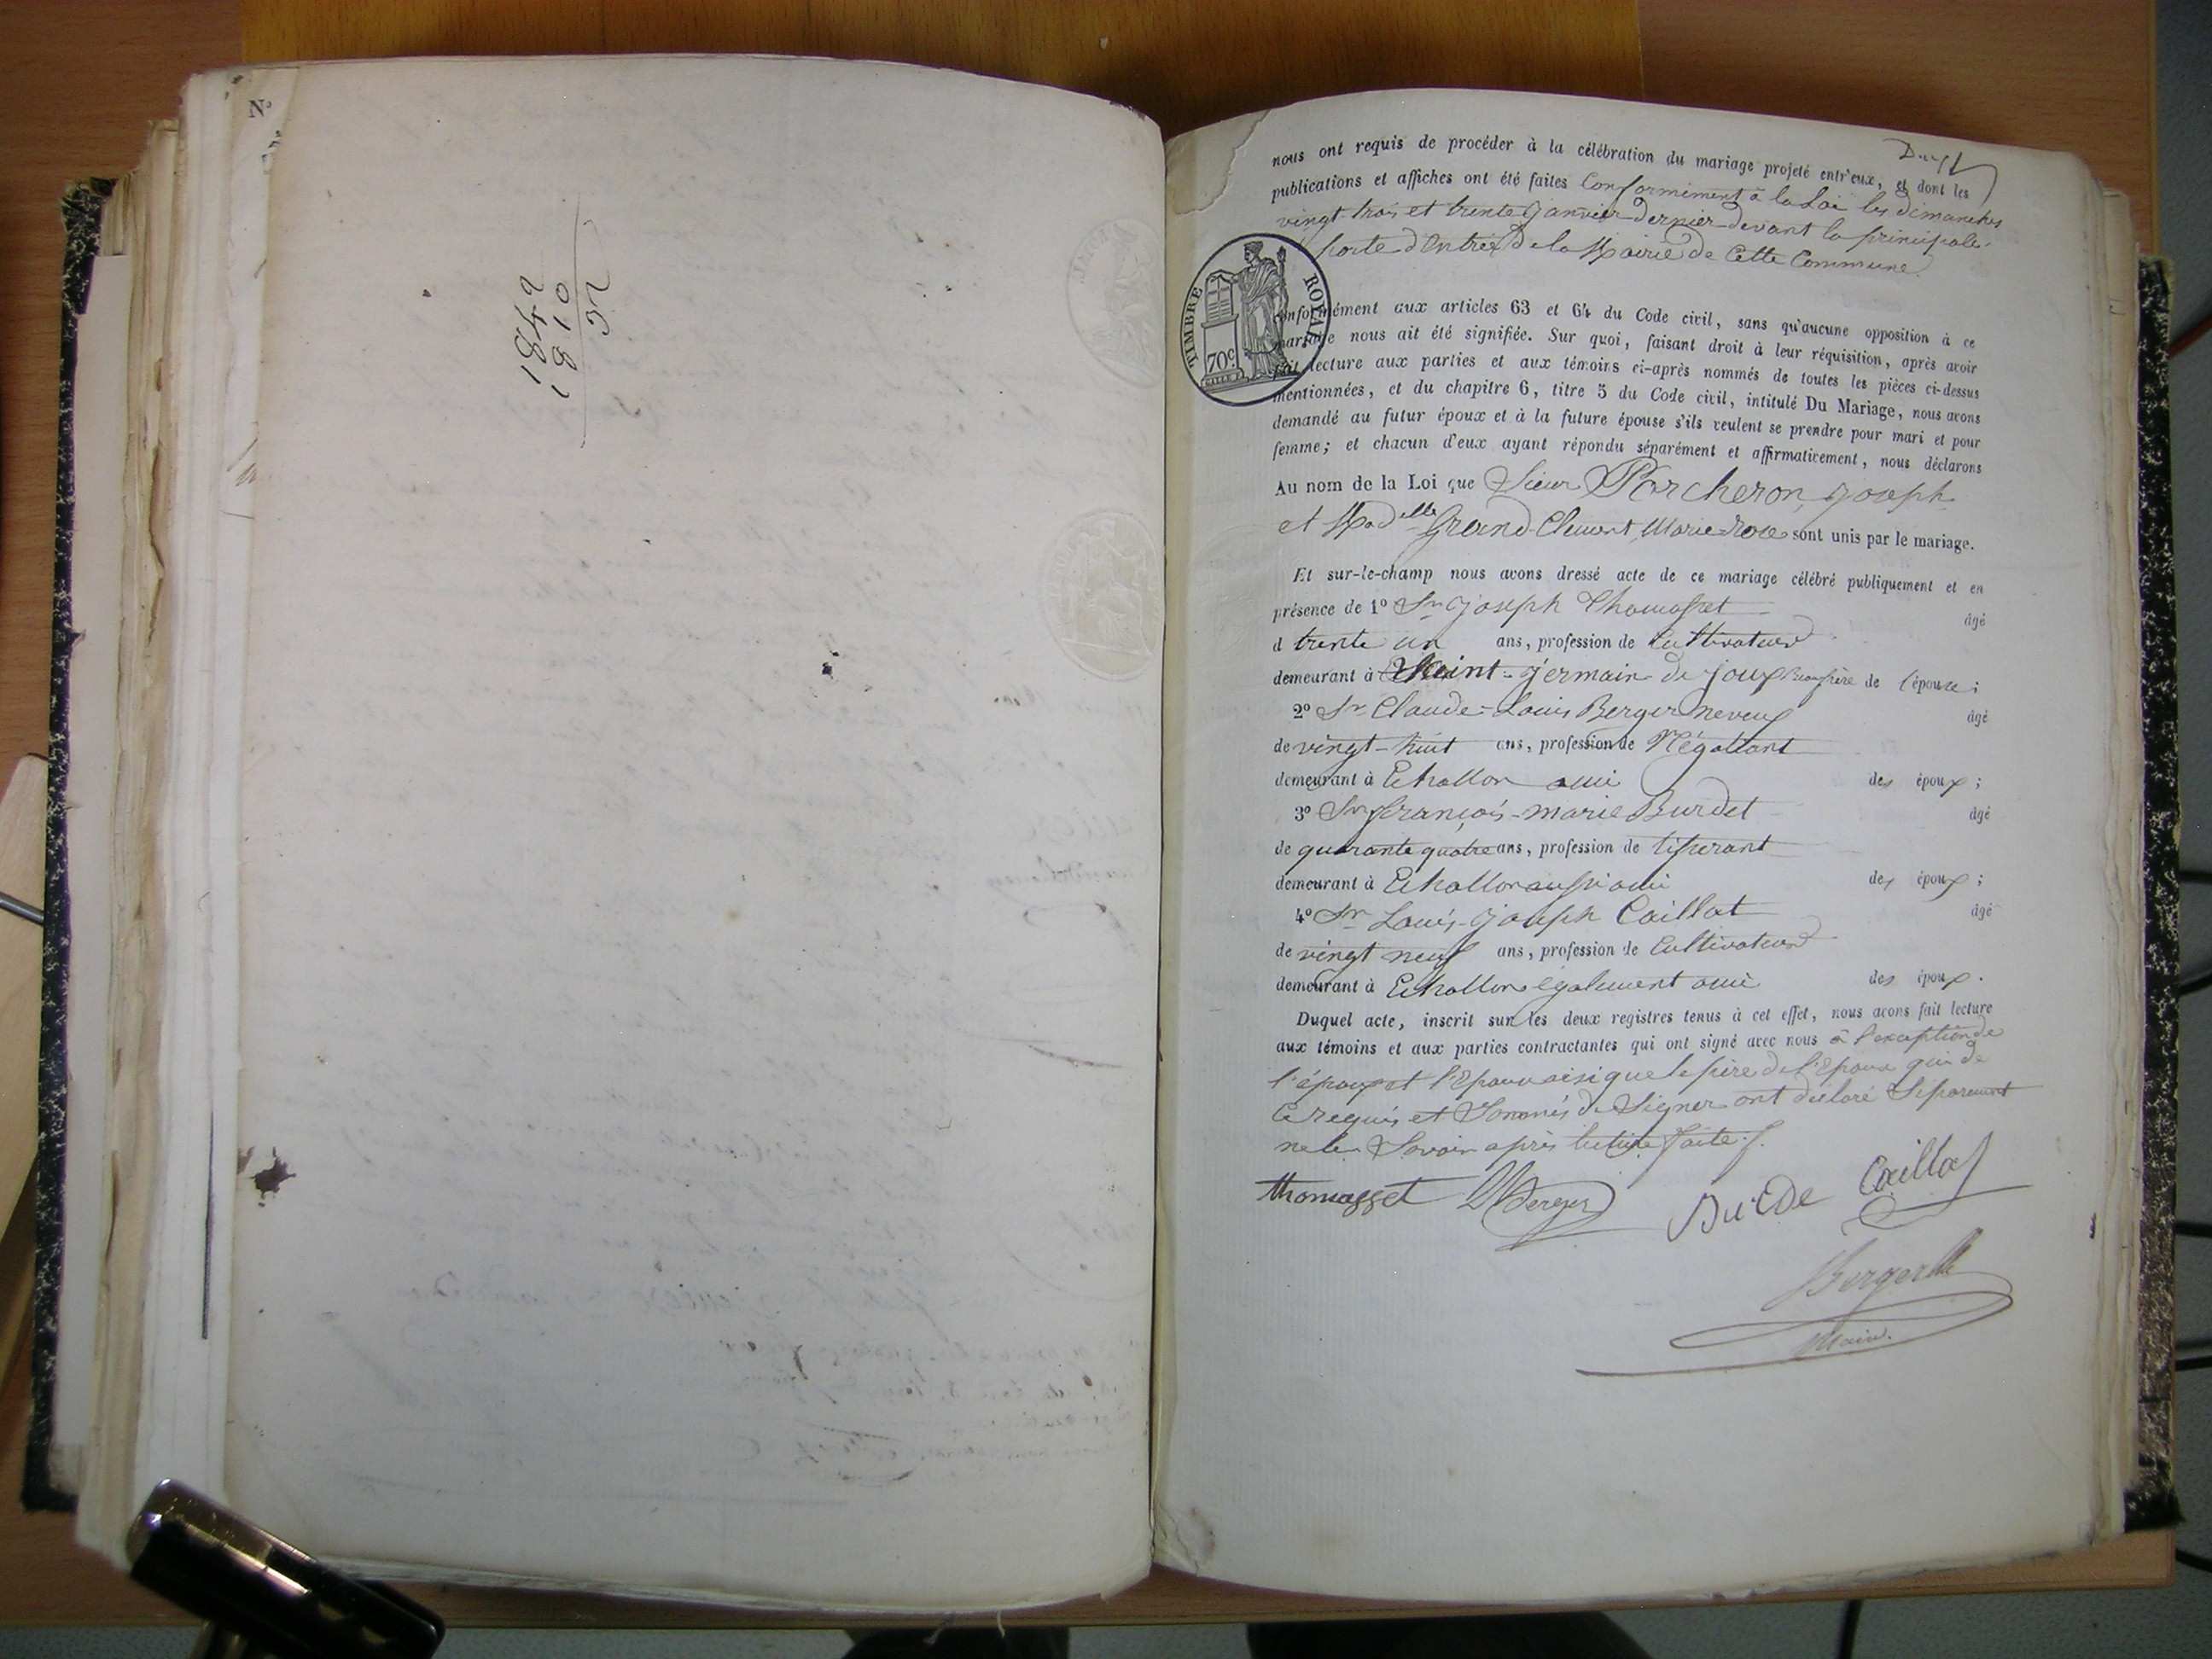 N°
1849
1810
32
nous ont requis de procéder à la célébration du mariage projeté entr'eux, et dont les
publications et affiches ont été faites Conformément à la Loi les dimanches
vingt trois et trente Janvier dernier devant la principale
porte d'Entrée de la Mairie de Cette Commune.
TIMBRE ROYAL
70c
conformément aux articles 63 et 64 du Code civil, sans qu'aucune opposition à ce
mariage nous ait été signifiée. Sur quoi, faisant droit à leur réquisition, après avoir
fait lecture aux parties et aux témoins ci-après nommés de toutes les pièces ci-dessus
mentionnées, et du chapitre 6, titre 5 du Code civil, intitulé Du Mariage, nous avons
demandé au futur époux et à la future épouse s'ils veulent se prendre pour mari et pour
femme; et chacun d'eux ayant répondu séparément et affirmativement, nous déclarons
Au nom de la Loi que Sieur Porcheron, Joseph
et Madelle Grand-Clément, Marie-rose sont unis par le mariage.
Et sur-le-champ nous avons dressé acte de ce mariage célébré publiquement et en
présence de 1° Sr Joseph Thomasset âgé
d trente un ans, profession de Cultivateur
demeurant à Saint-Germain de Joux Beaufrère de l'épouse;
2° Sr Claude-Louis Berger neveux âgé
de vingt-huit ans, profession de Négotiant
demeurant à Echallon ami des époux;
3° Sr François-marie Burdet âgé
de quarante quatre ans, profession de tisserant
demeurant à Echallon aussi ami des époux;
4° Sr Louis-Joseph Caillat âgé
de vingt neuf ans, profession de Cultivateur
demeurant à Echallon également ami des époux.
Duquel acte, inscrit sur les deux registres tenus à cet effet, nous avons fait lecture
aux témoins et aux parties contractantes qui ont signé avec nous à l'exception de
l'époux et l'Epouse aisi que le père de l'Epoux qui de
Ce requis et Sommés de Signer ont déclaré Séparement
ne le Savoir après lecture faite.
thomasset Berger Burde Caillat
Berger
Maire.